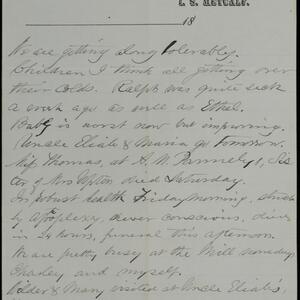 I. S. METCALF.
18
We are getting along tolerably.
Children I think all getting over
their colds. Ralph was quite sick
a week ago as well as Ethel.
Baby is worst now but improving.
Uncle Eliab & Maria go tomorrow
Miss Thomas, at A. W. Parmely's, sis
ter of Mrs Upton died Saturday.
In robust health Friday morning, struck
by Apoplexy, never conscious, died
in 24 hours, funeral this afternoon.
We are pretty busy at the Mill nowadays
Charley and myself.
Wilder & Mary visited at Uncle Eliab's,